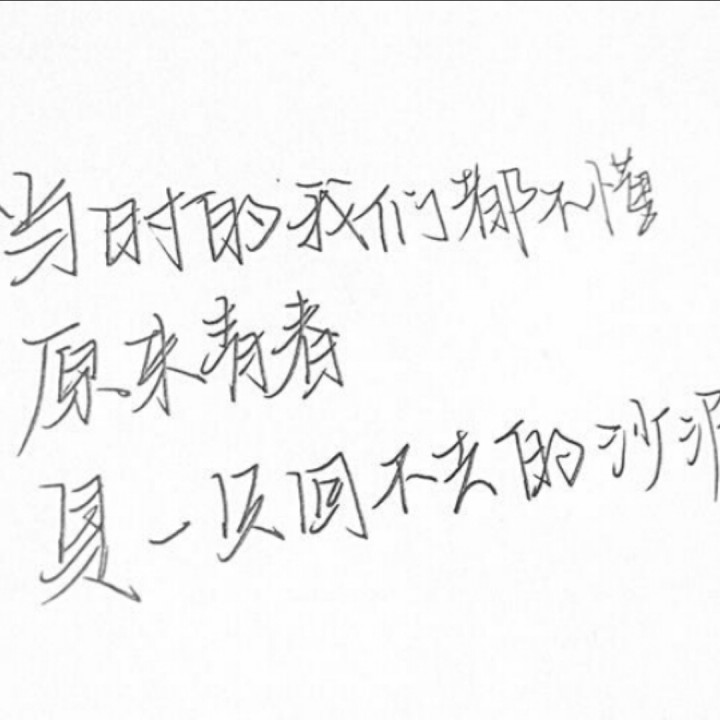 当时的我们都不懂
原来青春
是一段回不去的沙